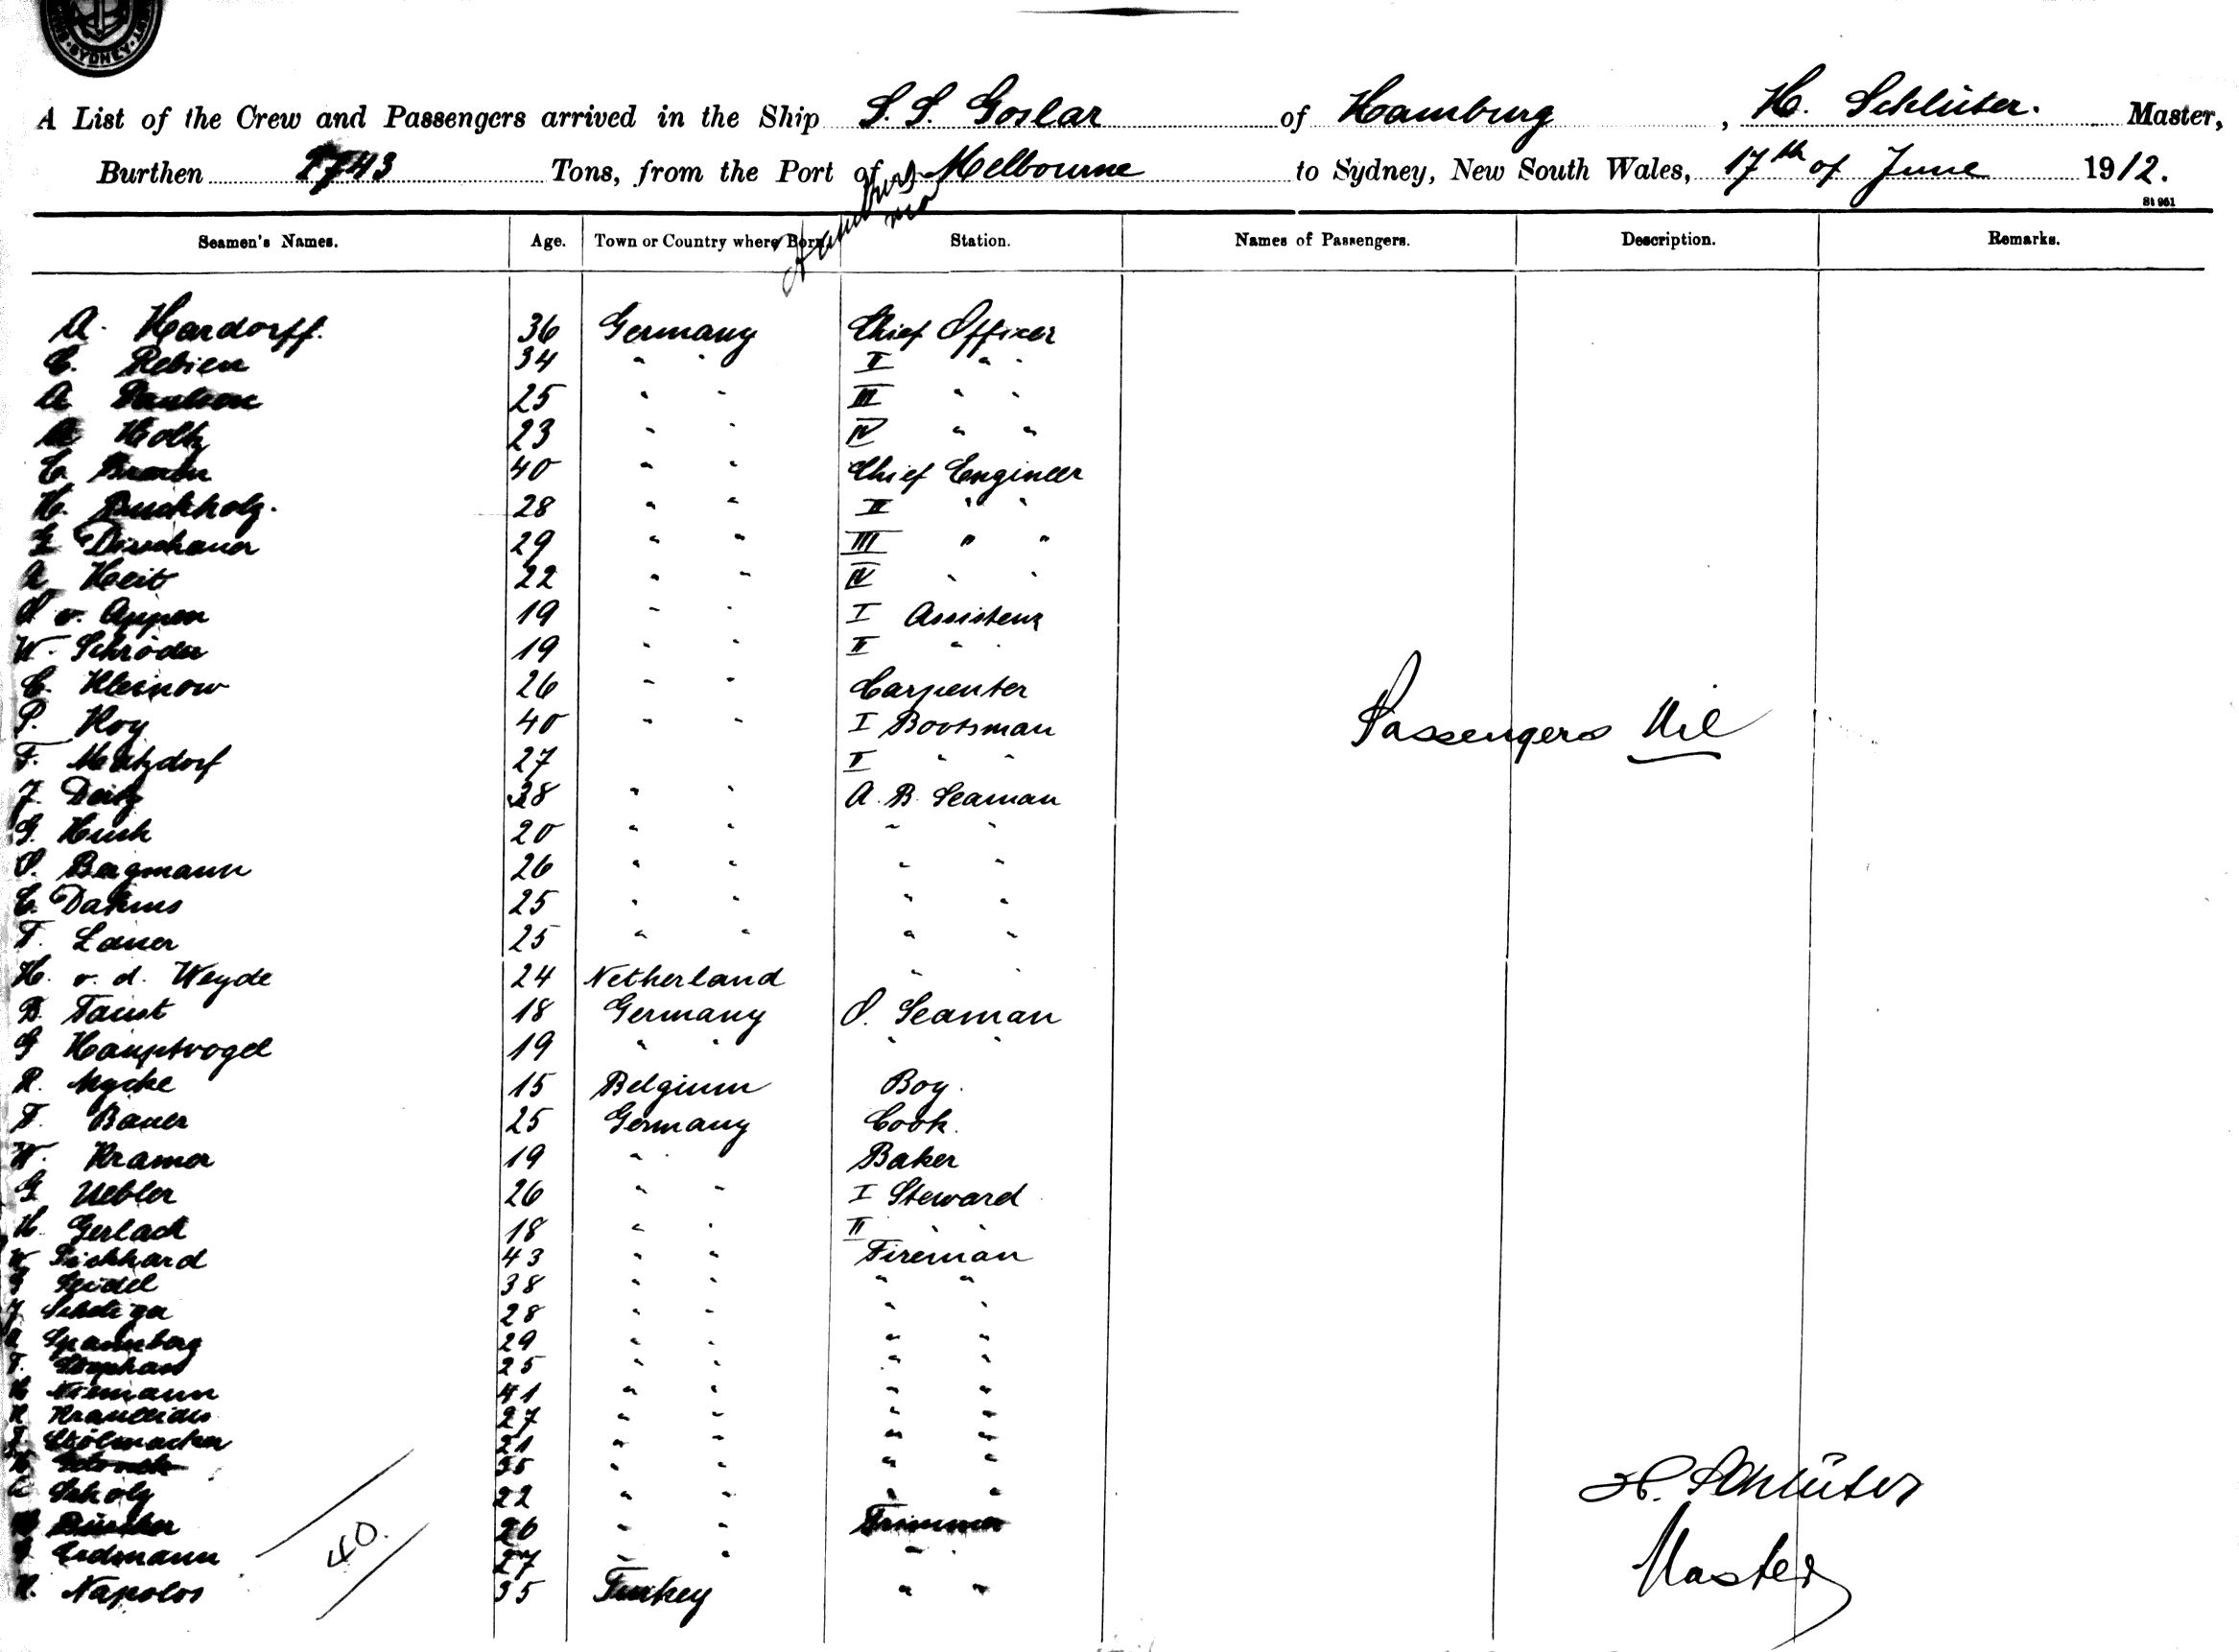 SYDNEY
A List of the Crew and Passengers arrived in the Ship S. S. Goslar of Hamburg, H. Schlüter. Master,
Burthen Tons, from the Port of Hamburg via Melbourne to Sydney, New South Wales, 17th of June 1912.
St 951
Seamen's Names. Age. Town or Country where Born. Station. Names of Passengers. Description. Remarks.
A. Hardorff. 36 Germany Chief Officer
C. Rebien 34 " " II " "
A 25 " " III " "
Holtz 23 " " IV " "
C 40 " " Chief Engineer
H. Buchholz. 28 " " II " "
Dirschauer 29 " " III " "
Heit 22 " " IV " "
v. Appen 19 " " I Assistenz
W. Schröder 19 " " II "
C. Kleinow 26 " " Carpenter
P. Koy 40 " " I Bootsman
Passengers Nil
F. Metzdorf 27 II " "
J. Deitz 28 " " A. B. Seaman
G. Kusk 20 " " " "
S. Bergmann 26 " " " "
C. Dahms 25 " " " "
F. Lauer 25 " " " "
H. v. d. Weyde 24 Netherland " "
B. Faust 18 Germany O. Seaman
G Hauptvogel 19 " " " "
R. Mycke 15 Belgium Boy.
F. Bauer 25 Germany Cook.
W. Kramer 19 " " Baker
G Uebler 26 " " I Steward
H. Gerlach 18 " " II " "
W 43 " " Fireman
G Seidel 38 " " " "
J 28 " " " "
Spannberg 29 " " " "
F. Stephan 25 " " " "
H Niemann 41 " " " "
27 " " " "
21 " " " "
35 " " " "
Scholz 22 " " " "
H. Schlüter
26 " " Trimmer
40.
Erdmann 27 " " "
Master
K. Napolos 35 Turkey " "